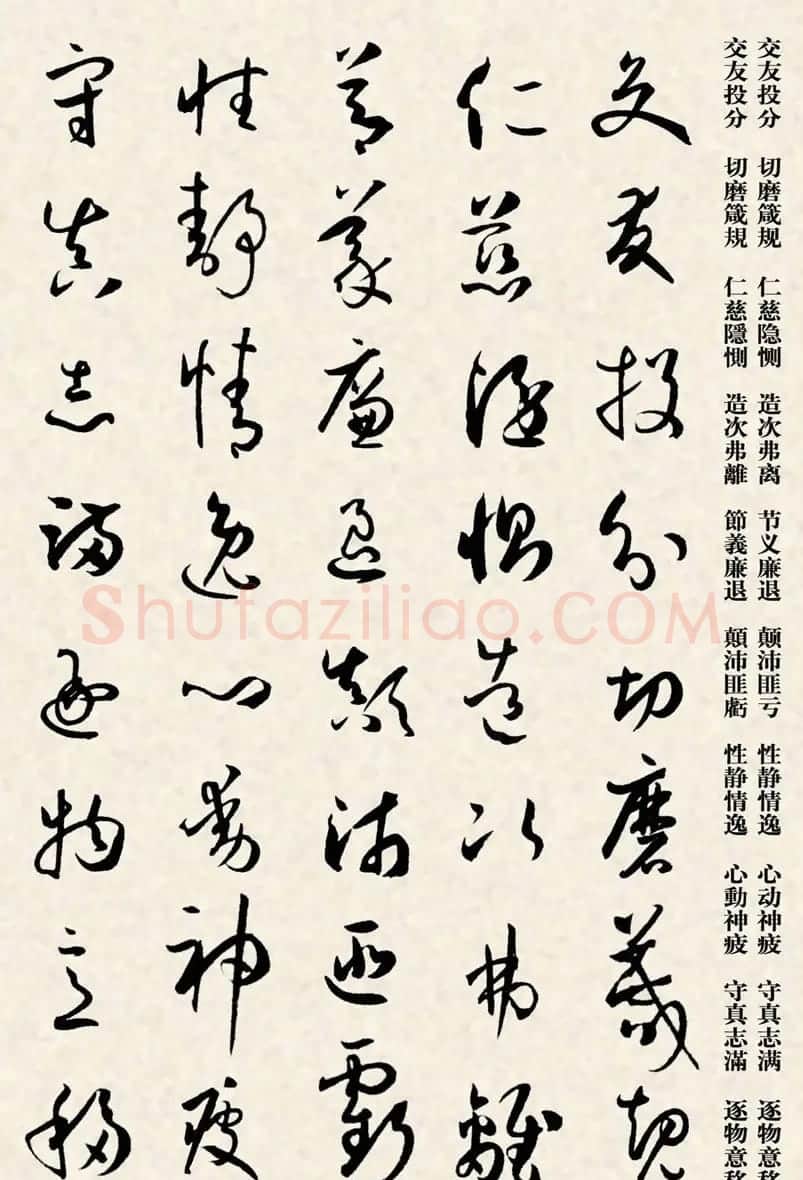 交友投分 切磨箴规 仁慈隐恻 造次弗离 节义廉退 颠沛匪亏 性静情逸 心动神疲 守真志满 逐物意移
交友投分 切磨箴規 仁慈隱惻 造次弗離 節義廉退 顛沛匪虧 性静情逸 心動神疲 守真志滿 逐物意移
交友投分切磨箴規
仁慈隱惻造次弗離
節義廉退顛沛匪虧
性靜情逸心動神疲
守真志滿逐物意移
Shufaziliao.COM